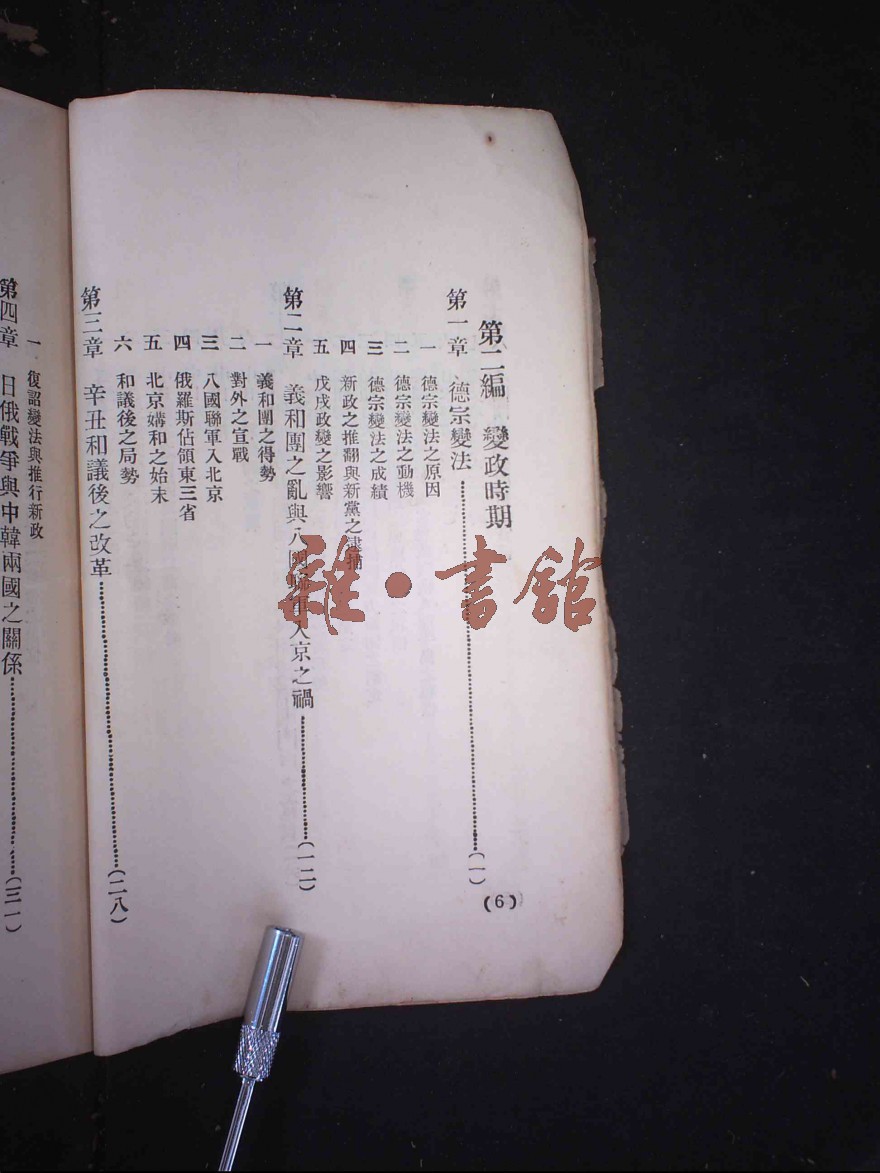 第二編 變政時期
第一章 德宗變法……(一)
一 德宗變法之原因
二 德宗變法之動機
三 德宗變法之成績
四 新政之推翻與新黨之逮捕
五 戊戌政變之影響
第二章 義和團之亂與八國聯軍入京之禍……(一二)
一 義和團之得勢
二 對外之宣戰
三 八國聯軍入北京
四 俄羅斯佔領東三省
五 北京媾和之始末
六 和議後之局勢
第三章 辛丑和議後之改革……(二八)
一 復詔變法與推行新政
第四章 日俄戰爭與中韓兩國之關係……(三一)
(6)
雜·書館